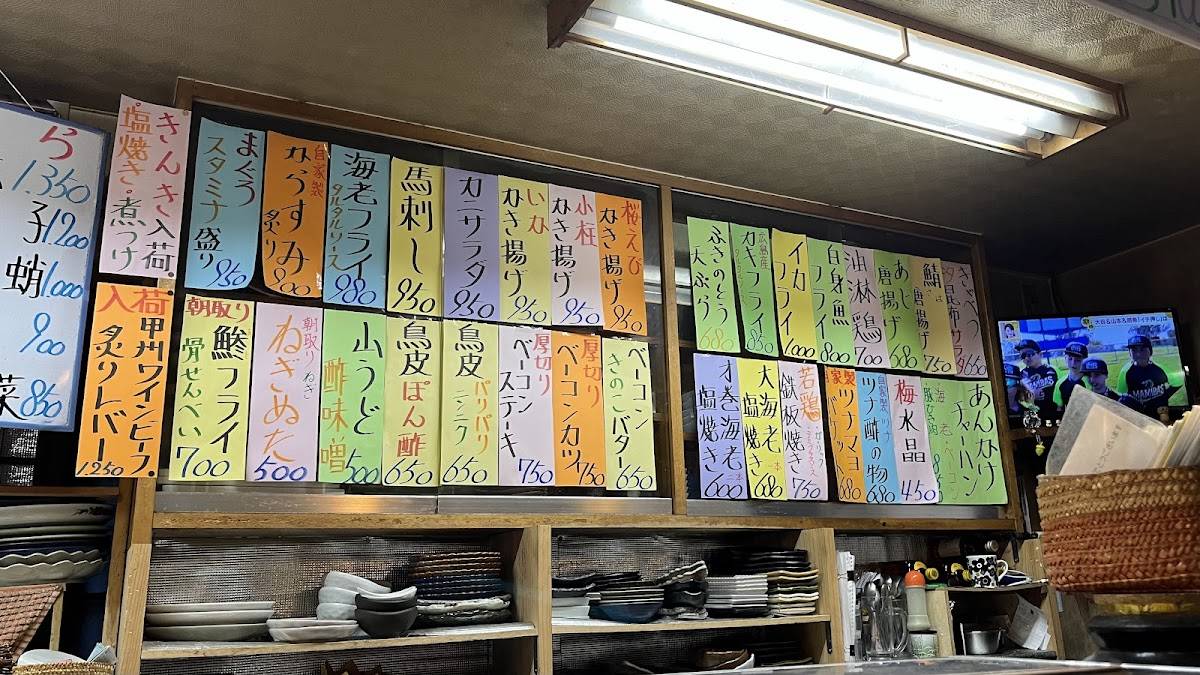 1.350
子1.200
蛸1.000
900
菜850
きんき入荷
塩焼き・煮つけ
入荷
甲州ワインビーフ
炙りレバー
1.250
まぐろ
スタミナ盛り
950
自家製
からすみ
炙り
800
海老フライ
タルタルソース
980
馬刺し
950
カニサラダ
950
いか
かき揚げ
950
小柱
かき揚げ
850
桜えび
かき揚げ
850
朝取り
鯵フライ
骨せんべい
700
朝取り
ねぎ
ねぎぬた
500
山うど
酢味噌
500
鳥皮
ぽん酢
650
鳥皮
パリパリ
650
厚切り
ベーコン
ステーキ
750
厚切り
ベーコンカツ
750
ベーコン
きのこバター
650
ふきのとう
天ぷら
広島産
カキフライ
850
イカ
フライ
1.000
白身魚
フライ
800
油淋鶏
700
あじ
唐揚げ
680
鯖
唐揚げ
750
きゃべつ
昆布サラダ
才巻海老
塩焼き
600
大海老
塩焼き
一本
680
若鶏
鉄板焼き
750
自家製
ツナマヨ
680
自家製
ツナ
ツナ酢の物
680
梅水晶
450
海老・ベーコン
あんかけ
チャーハン